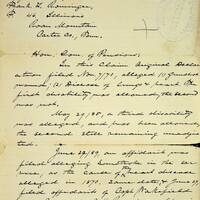 Frank L. Noninger,
F 46, Illinois
Roan Mountain
Carter Co., Tenn.
Hon. Com. of Pensions,
In this Claim Original Declar-
ation filed Nov. 7/70, alleged (1) gunshot
wound; (2) Disease of lungs & heart. The
first disability was allowed, the second
was not.
May 29/80, a third disability
was alleged, and has been allowed,
the second still remaining unadjudi-
cated.
June 23/89, an affidavit was
filed alleging sunstroke in the ser-
vice, as the cause of heart disease
alleged in 1870, and later June 29/
filed affidavit of Capt. Wakefield